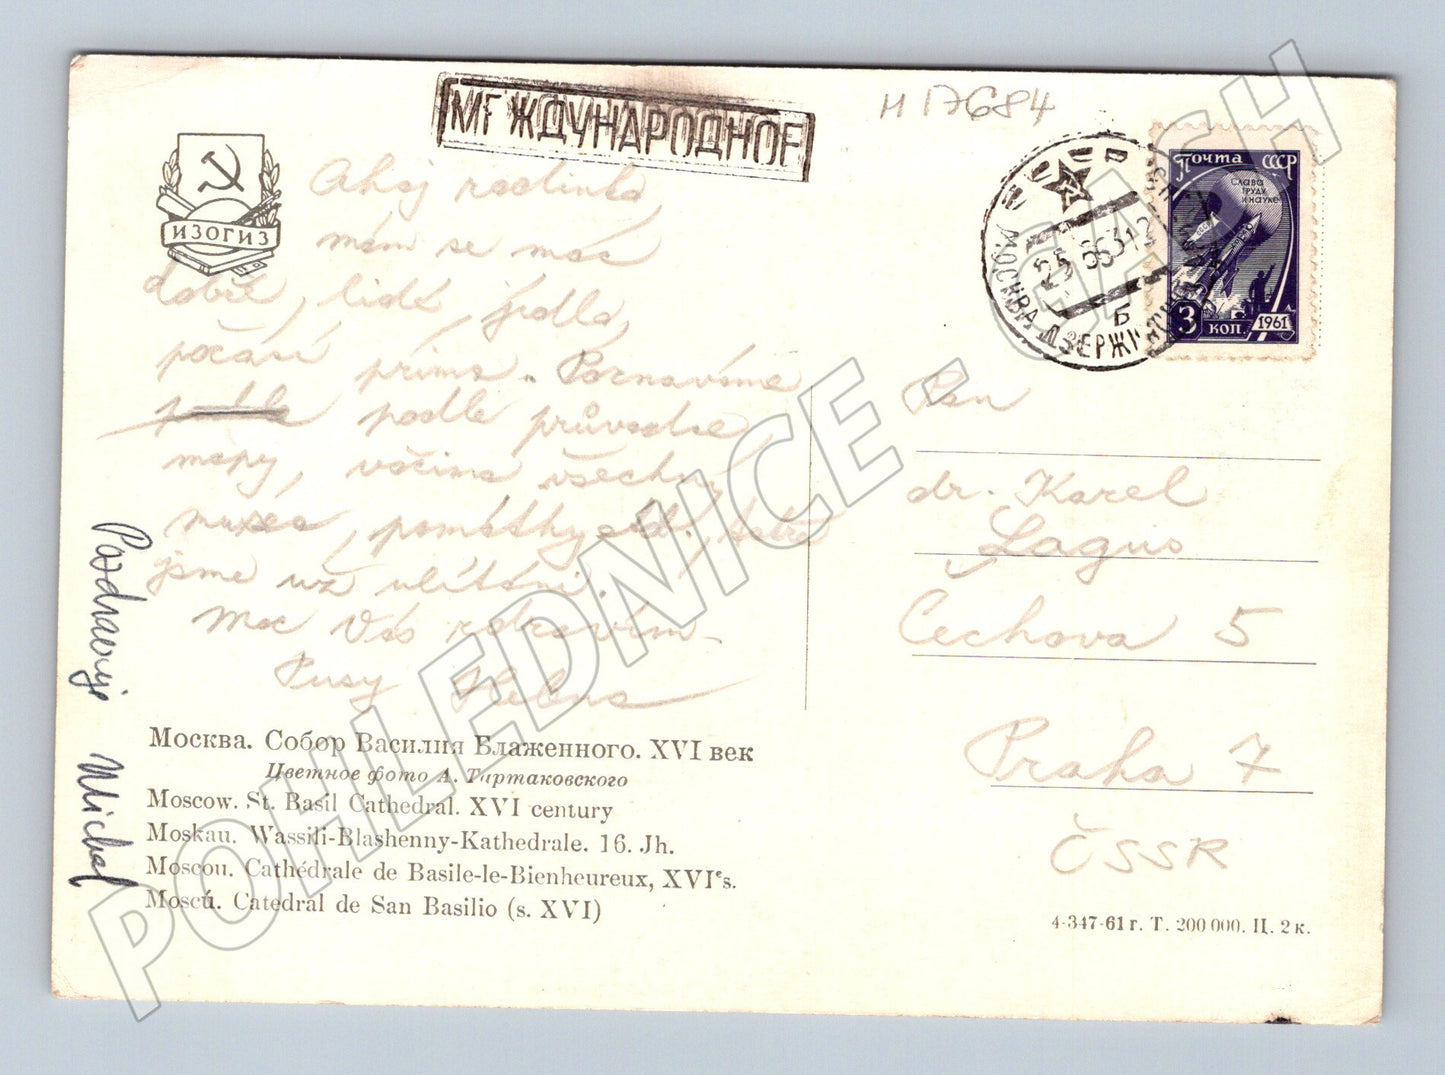 МЕЖДУНАРОДНОЕ
М 17684
ИЗОГИЗ
Почта СССР
СЛАВА
ТРУДУ
И НАУКЕ
3 КОП. 1961
МОСКВА ДЗЕРЖИНСК
Б
Ahoj rodinko,
mám se moc
dobře, lidé, jídlo,
počasí príma. Poznáváme
podle průvodce,
mapy, všechny
musea, památky atd., takže
jsme už ulítaní.
Moc Vás zdravím
Pusy Helena
Pozdravuje Michal
Pan
dr. Karel
Lagus
Čechova 5
Praha 7
ČSSR
Москва. Собор Василия Блаженного. XVI век
Цветное фото А. Тартаковского
Moscow. St. Basil Cathedral. XVI century
Moskau. Wassili-Blashenny-Kathedrale. 16. Jh.
Moscou. Cathédrale de Basile-le-Bienheureux, XVIᵉs.
Moscú. Catedral de San Basilio (s. XVI)
4-347-61 г. Т. 200 000. Ц. 2 к.
POHLEDNICE - CASH